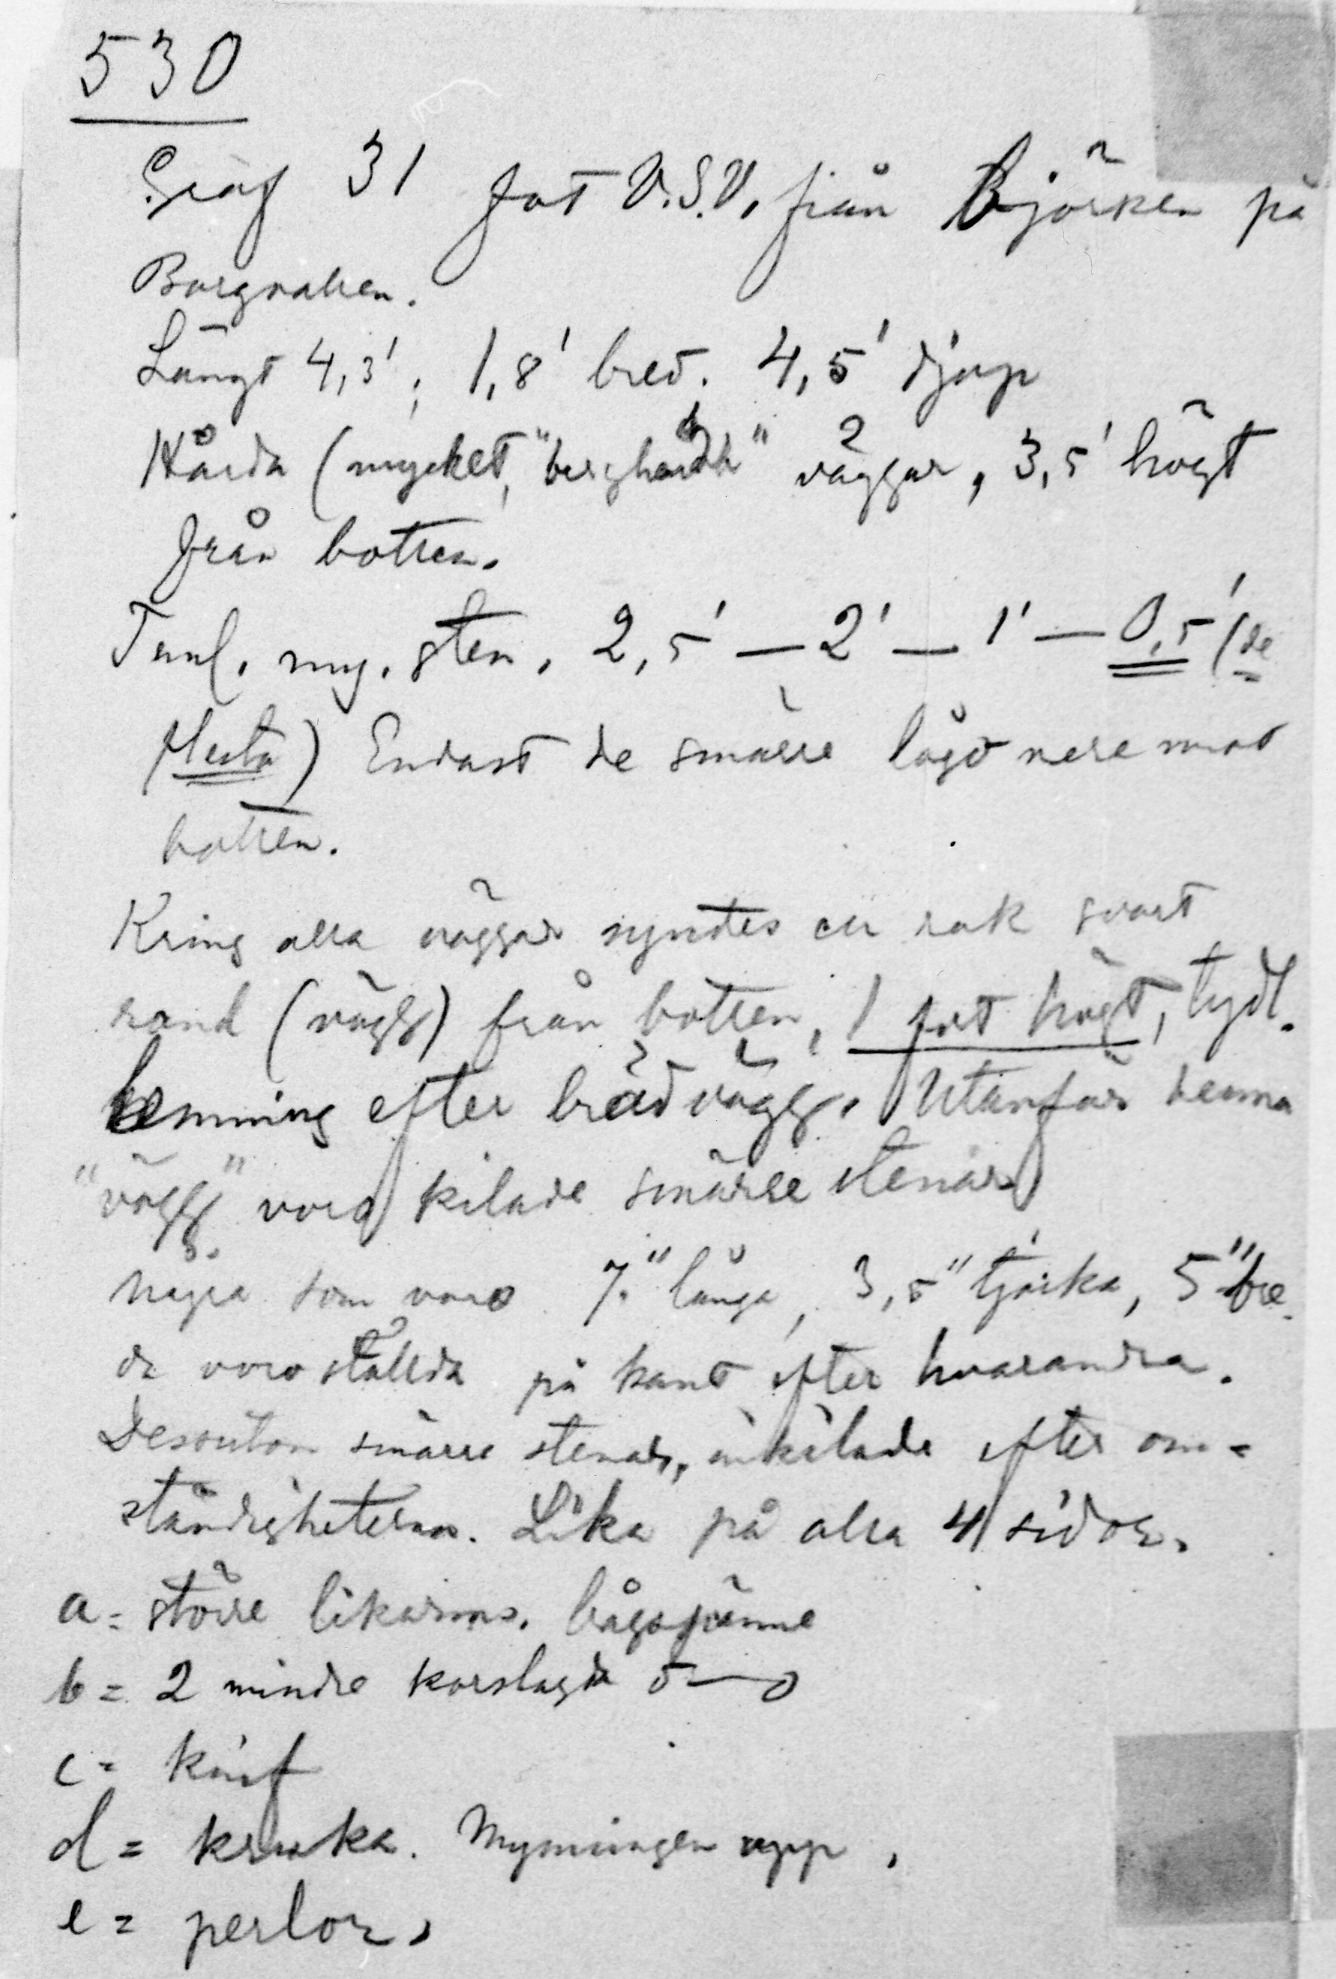 530
Graf 31 fot V.S.V. från Björken på
Borgvallen.
Längt 4,3'; 1,8' bred. 4,5' djup
Hårda (mycket, "berghårda" väggar, 3,5' högt
från botten.
my. sten. 2,5' — 2' — 1' — 0,5' (de
flesta) Endast de smärre lågo nere mot
botten.
Kring alla väggar syntes en rak svart
rand (vägg) från botten, 1 fot högt, tydl.
lemning efter brädvägg. Utanför denna
"vägg" voro kilade smärre stenar
några som voro 7" långa, 3,5" tjocka, 5" bre
da voro ställda på kant efter hvarandra.
Dessutom smärre stenar, inkilade efter om=
ständigheterna. Lika på alla 4 sidor.
a = större likarms. bågspänne
b = 2 mindre korslagda o—o
c = knif
d = kruka. Mynningen upp.
e = perlor.